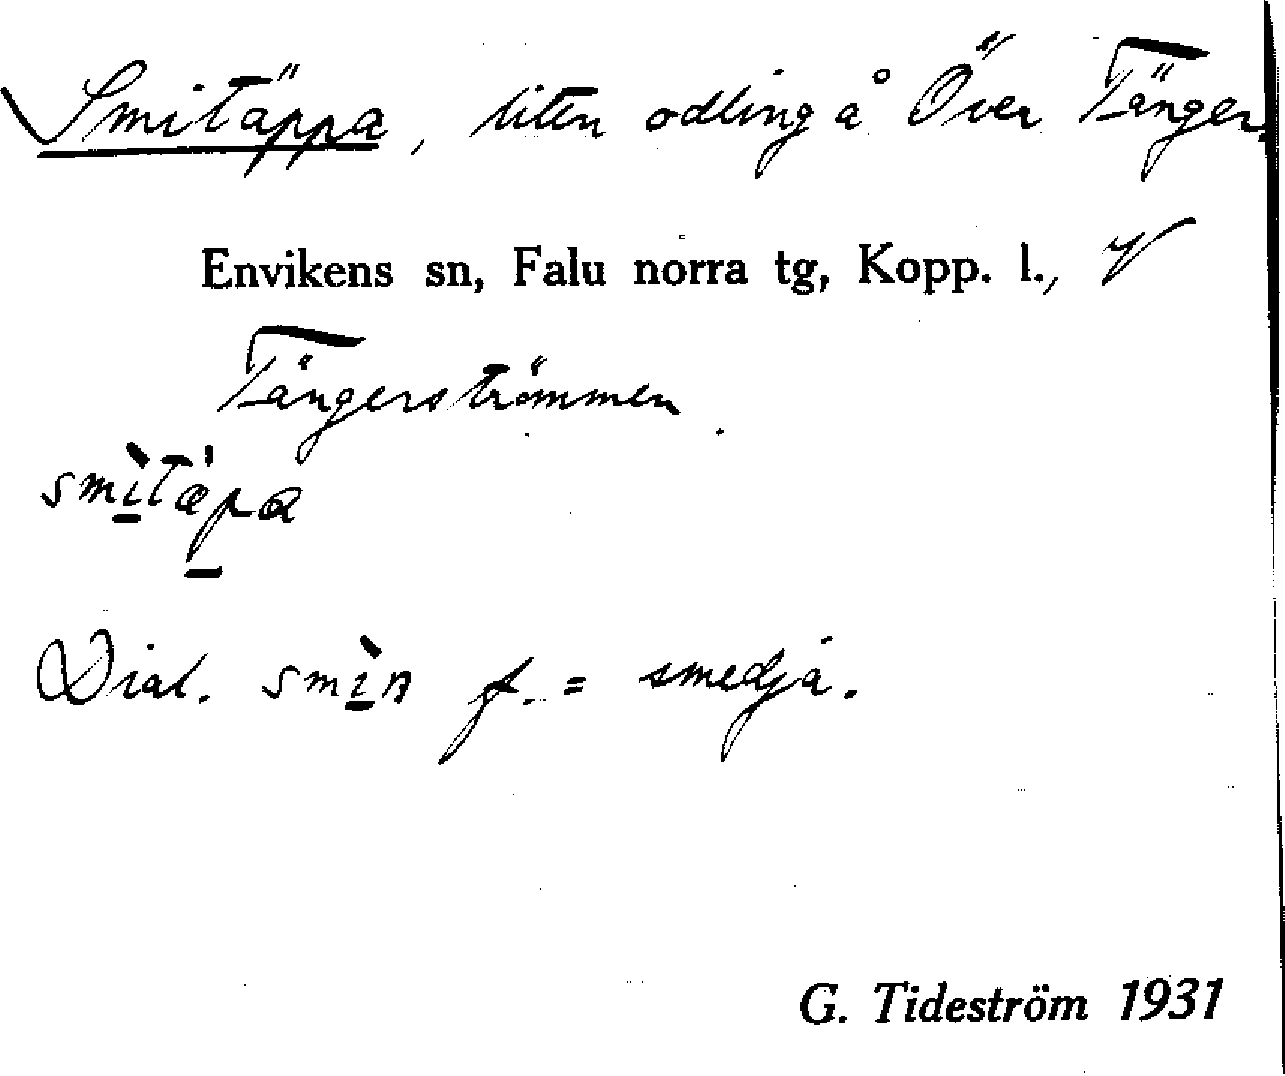 Smitäppa, liten odling å Över Tänger,
Envikens sn, Falu norra tg, Kopp. l., V
Tängerströmmen.
smìtæ̍pa
Dial. smìn f. = smedja.
G. Tideström 1931